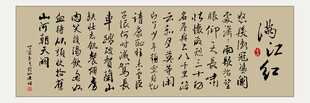 滿江紅
怒髮衝冠憑闌
處瀟瀟雨歇抬望
眼仰天長嘯壯
懷激烈三十功
名塵與土八千里路
雲和月莫等閒白
了少年頭空悲切
靖康恥猶未雪臣
子恨何時滅駕長
車踏破賀蘭山缺
壯志飢餐胡虜
肉笑談渴飲匈奴
血待從頭收拾舊
山河朝天闕